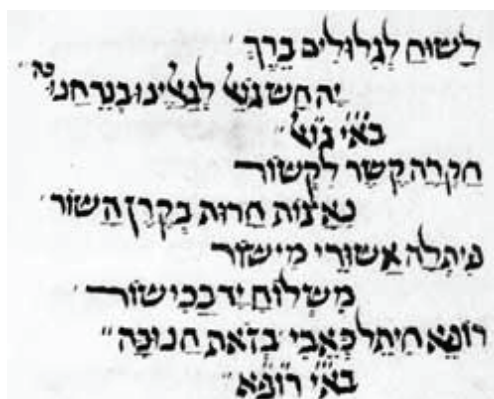 לשוח לגלולים ברך
יה חש גואל לגאלינו בנר חנוכה
בא״י גואל״
חקרה קשר לקשור
נאצות חרות בקרן השור
פיתלה אשורי מישור
משלוח יד בכישור
רופא חיתל כאבי בזאת חנוכה״
בא״י רופא״